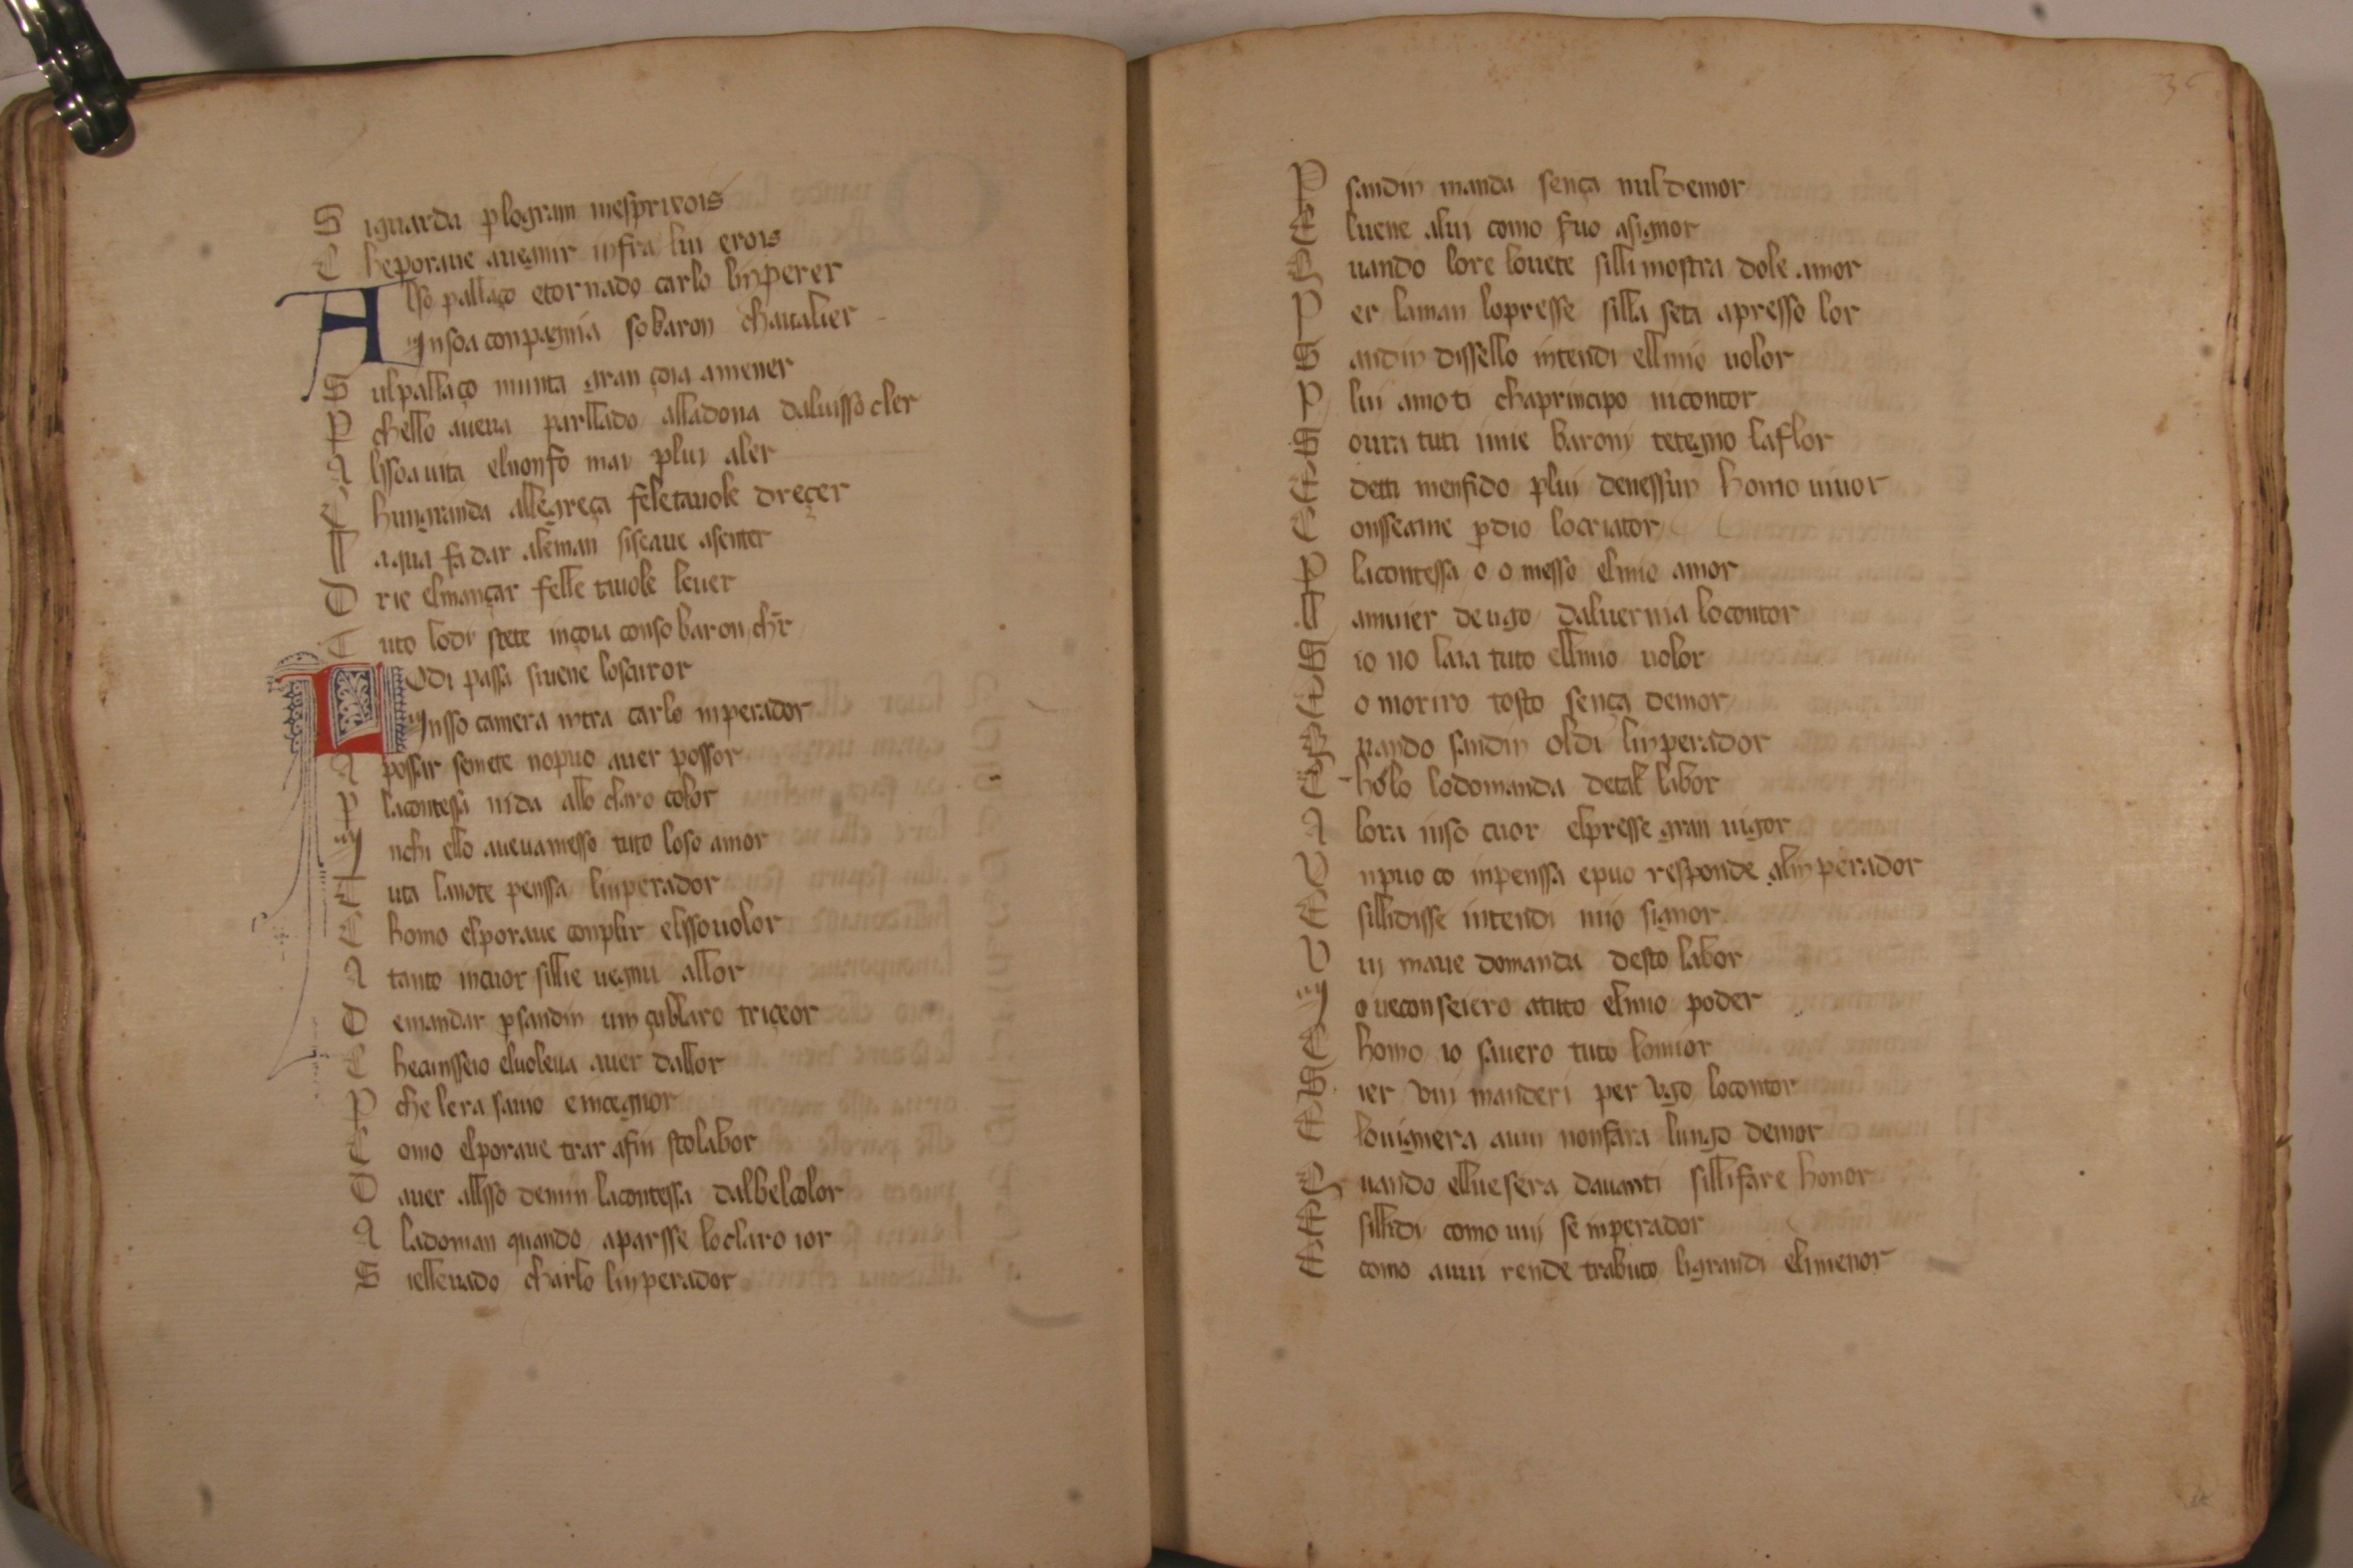 S iguarda p logram mesprixois
C he poraue auegnir infra lui erois
A lso pallaço e tornado carlo linperer
In soa conpagnia so baron chaualier
S ul pallaço munta gran çoia a mener
P chello aueua parllado alla dona dal uisso cler
A lisoa uita el non fo mai plui aler
C hun granda allegreça fe le tauole dreçer
ll aqua fa dar ale man si se aue asenter
D rie el mançar felle tauole leuer
T uto lo di stete in çoia con so baron chr
L o di passa si uene lo scuror
In sso camera intra carlo inperador
A possar se mete no puo auer possor
P la contessa nida allo claro color
I nchi ello aueua messo tuto lo so amor
T uta la note penssa linperador
C homo el poraue conplir el sso uolor
A tanto in cuor sillie uegnu allor
D e mandar p sandin um çubllaro triçeor
C he cunsseio el uoleua auer dallor
P che lera sauio e inçegnor
C omo el poraue trar a fin sto labor
D auer allsso demin la contessa dal bel color
A la doman quando aparsse lo claro ior
S i elleuado charlo linperador
P sandin manda sença nul demor
E l uene a lui como fuo a signor
Q uando lo re lo uete silli mostra dole amor
P er la man lo presse silla seta apresso lor
S andin dissello intendi ell mio uolor
P lui amo ti cha principo ni contor
S oura tuti i mie baroni te tegno la flor
E de ti me nfido plui de nessun homo uiuor
C onsseame p dio lo criator
P la contessa o o messo el mio amor
ll a muier de ugo daluernia lo contor
S io no laia tuto ell mio uolor
E o moriro tosto sença demor
Q uando sandin oldi linperador
C holo lo domanda de tal labor
A lora in so cuor el presse gran uigor
U n puoco in penssa e puo responde alinperador
E sillidisse intendi mio signor
V ui maue domanda desto labor
I o ue conseiero a tuto el mio poder
C homo io sauero tuto lo mior
S ier vui manderi per vgo lo contor
E lo uignera a uui non fara lungo demor
Q uando elluesera dauanti silli fare honor
E sillidi como uui se inperador
E como a uui rende trabuto li grandi e li menor